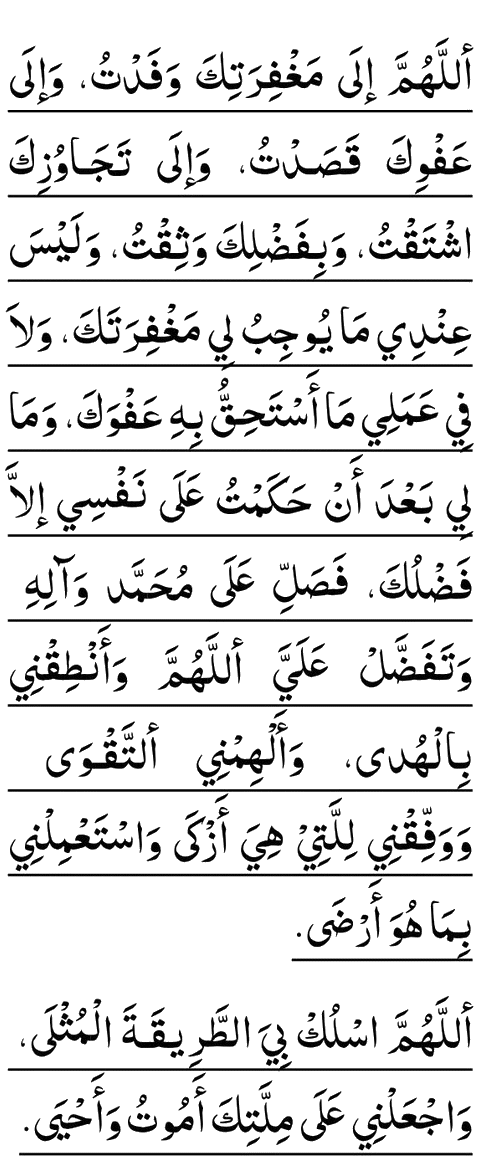 أللَّهُمَّ إلَى مَغْفِرَتِكَ وَفَدْتُ، وَإلَى
عَفْوِكَ قَصَدْتُ، وَإلَى تَجَاوُزِكَ
اشْتَقْتُ، وَبِفَضْلِكَ وَثِقْتُ، وَلَيْسَ
عِنْدِي مَا يُوجِبُ لِي مَغْفِرَتَكَ، وَلاَ
فِي عَمَلِي مَا أَسْتَحِقُّ بِهِ عَفْوَكَ، وَمَا
لِي بَعْدَ أَنْ حَكَمْتُ عَلَى نَفْسِي إلاَّ
فَضْلُكَ، فَصَلِّ عَلَى مُحَمَّد وَآلِهِ
وَتَفَضَّلْ عَلَيَّ أللَّهُمَّ وَأَنْطِقْنِي
بِالْهُدى، وَأَلْهِمْنِي ألتَّقْوَى
وَوَفِّقْنِي لِلَّتِيْ هِيَ أَزْكَى وَاسْتَعْمِلْنِي
بِمَا هُوَ أَرْضَى.
أللَّهُمَّ اسْلُكْ بِيَ الطَّرِيقَةَ الْمُثْلَى،
وَاجْعَلْنِي عَلَى مِلَّتِكَ أَمُوتُ وَأَحْيَى.